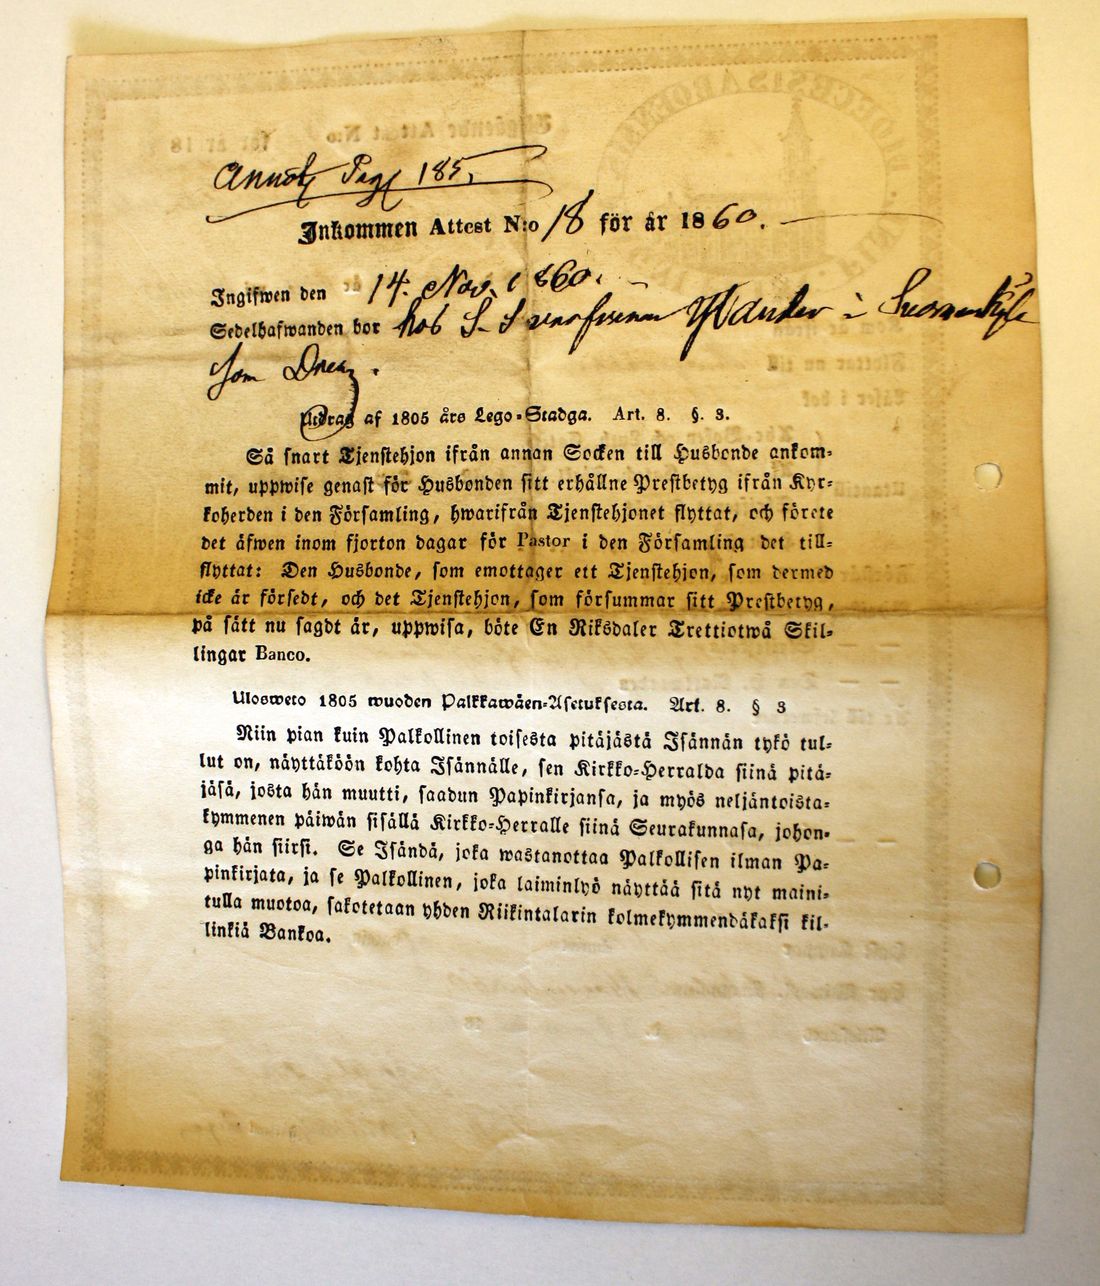 Annot Pag 185,
Inkommen Attest N:o 18 för år 1860.
Ingifwen den 14. Nov. 1860.
Sedelhafwanden bor hos S. i
som Dreng.
Utdrag af 1805 års Lego-Stadga. Art. 8. §. 3.
Så snart Tjenstehjon ifrån annan Socken till Husbonde ankom-
mit, uppwise genast för Husbonden sitt erhållne Prestbetyg ifrån Kyr-
koherden i den Församling, hwarifrån Tjenstehjonet flyttat, och förete
det äfwen inom fjorton dagar för Pastor i den Församling det till-
flyttat: Den Husbonde, som emottager ett Tjenstehjon, som dermed
icke är försedt, och det Tjenstehjon, som försummar sitt Prestbetyg,
på sätt nu sagdt är, uppwisa, böte En Riksdaler Trettiotwå Skil-
lingar Banco.
Ulosweto 1805 wuoden Palkkawäen-Asetuksesta. Art. 8. § 3
Niin pian kuin Palkollinen toisesta pitäjästä Isännän tykö tul-
lut on, näyttäköön kohta Isännälle, sen Kirkko-Herralda siinä pitä-
jäsä, josta hän muutti, saadun Papinkirjansa, ja myös neljäntoista-
kymmenen päiwän sisällä Kirkko-Herralle siinä Seurakunnasa, johon-
ga hän siirsi. Se Isändä, joka wastanottaa Palkollisen ilman Pa-
pinkirjata, ja se Palkollinen, joka laiminlyö näyttää sitä nyt maini-
tulla muotoa, sakotetaan yhden Riikintalarin kolmekymmendäkaksi kil-
linkiä Bankoa.